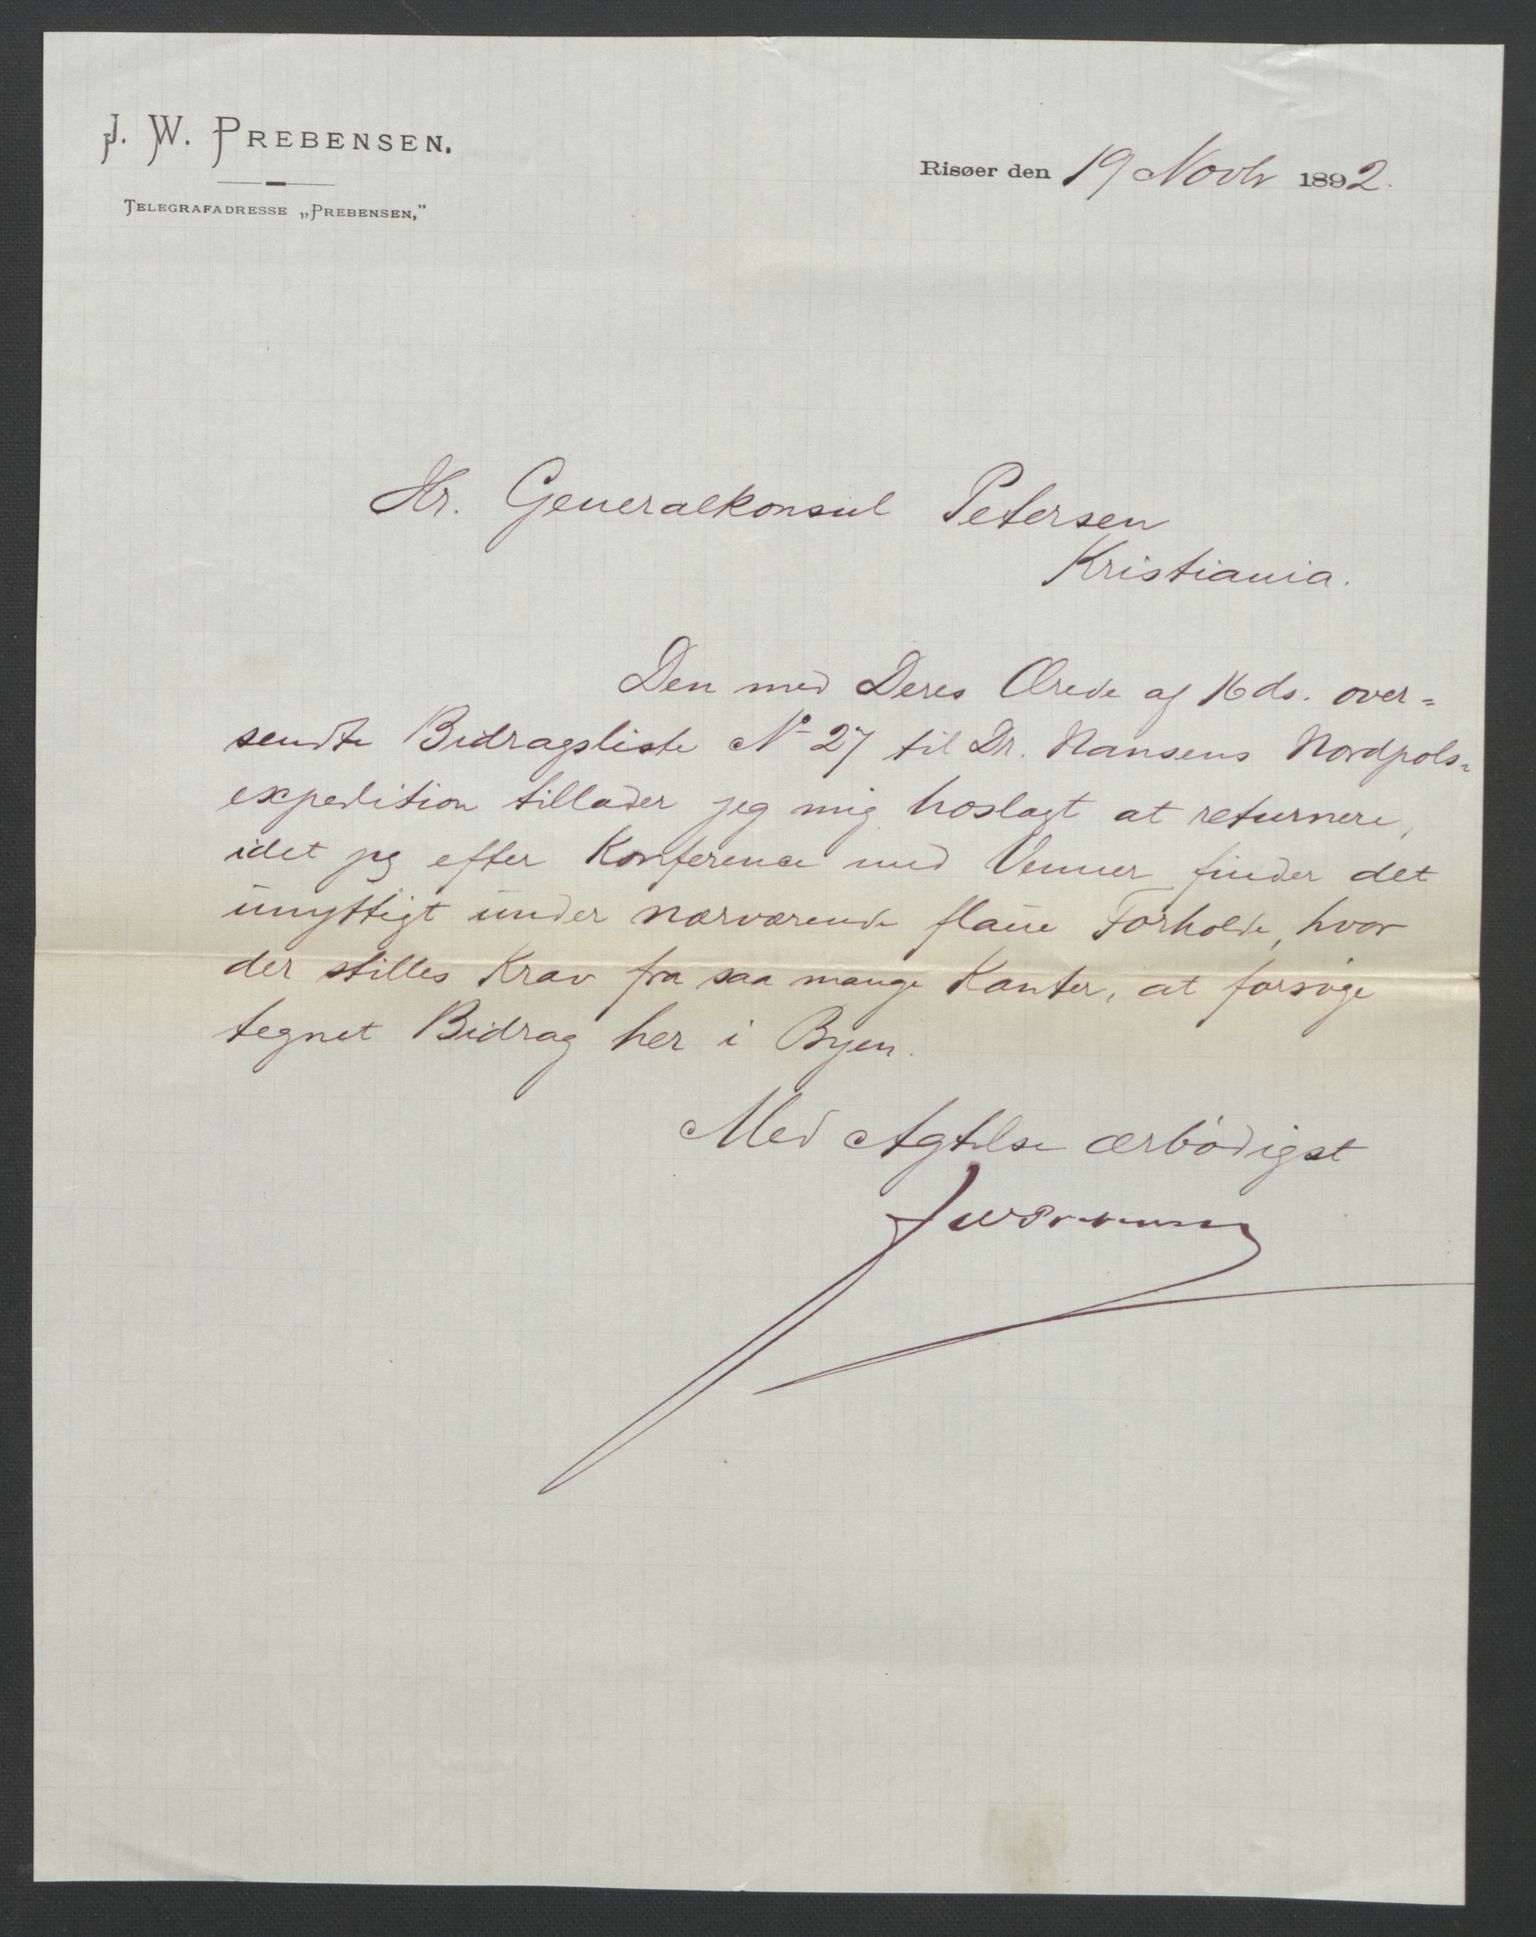 J. W. PREBENSEN.
TELEGRAFADRESSE „PREBENSEN,”
Risøer den 19 Novbr 1892.
Hr. Generalkonsul Petersen
Kristiania.
Den med Deres Ærede af 16 ds. over=
sendte Bidragsliste No 27 til Dr. Nansens Nordpols=
expedition tillader jeg mig hoslagt at returnere,
idet jeg efter Konference med Venner finder det
unyttigt under nærværende flaue Forholde, hvor
der stilles Krav fra saa mange Kanter, at forsøge
tegnet Bidrag her i Byen.
Med Agtelse ærbødigst
JWPrebensen